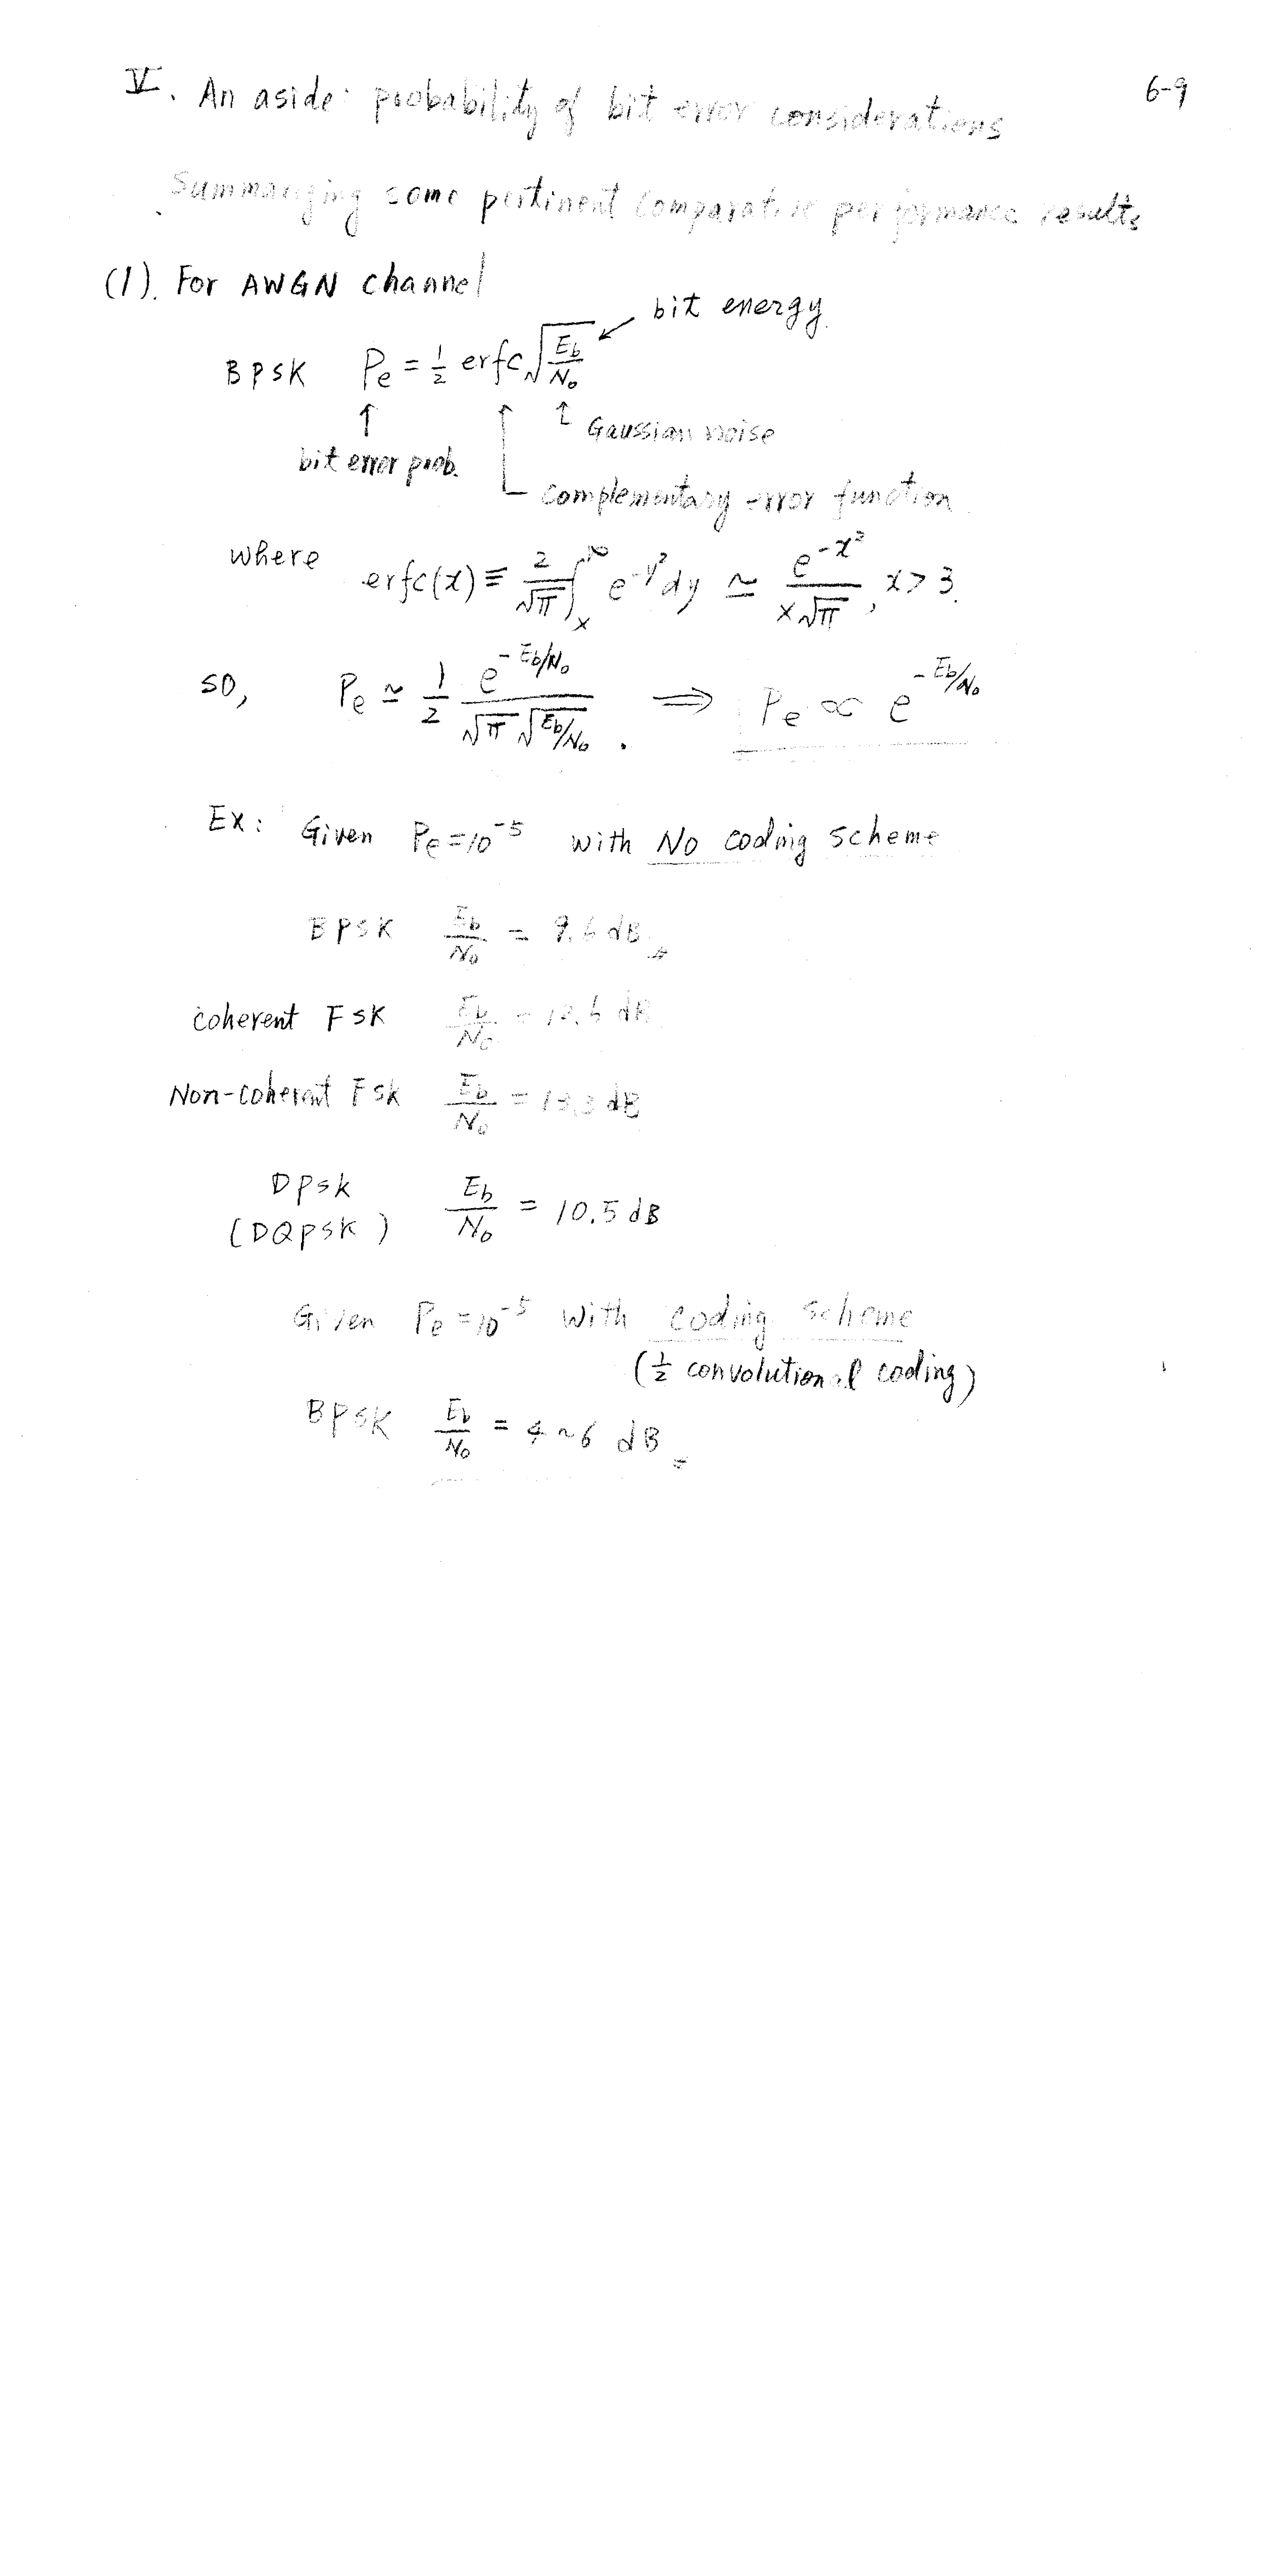 V. An aside: probability of bit error considerations
6-9
Summarizing some pertinent comparative performance results
(1). For AWGN channel
bit energy
BPSK Pe = 1/2 erfc √(Eb/No)
↑ ↑ ↑ Gaussian noise
bit error prob.
complementary error function
where erfc(x) ≡ 2/√π ∫ₓ^∞ e^(-y²) dy ≃ e^(-x²)/(x√π), x > 3.
so, Pe ≃ 1/2 e^(-Eb/No)/(√π √(Eb/No)). ⟹ Pe ∝ e^(-Eb/No)
Ex: Given Pe = 10^-5 with No coding scheme
BPSK Eb/No = 9.6 dB
coherent FSK Eb/No = 12.6 dB
Non-coherent FSK Eb/No = 13.3 dB
DPSK
(DQPSK) Eb/No = 10.5 dB
Given Pe = 10^-5 with coding scheme
(1/2 convolutional coding)
BPSK Eb/No = 4~6 dB